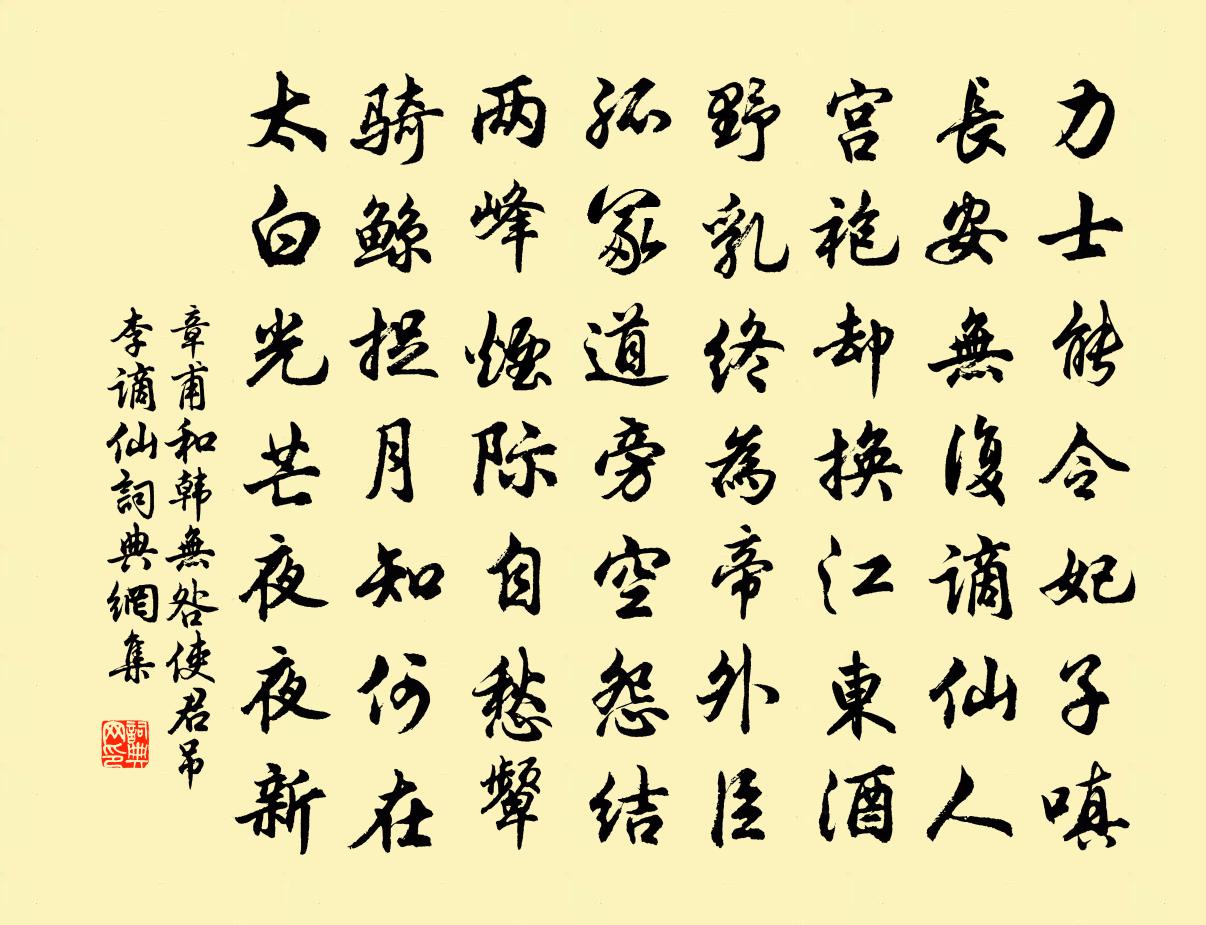 力士能令妃子嗔
長安無復謫仙人
宫袍却换江東酒
野乳終為帝外臣
孤冢道旁空怨结
两峰煙际自愁颦
骑鲸捉月知何在
太白光芒夜夜新
章甫和韩無咎使君吊
李謫仙詞典網集
詞典網印